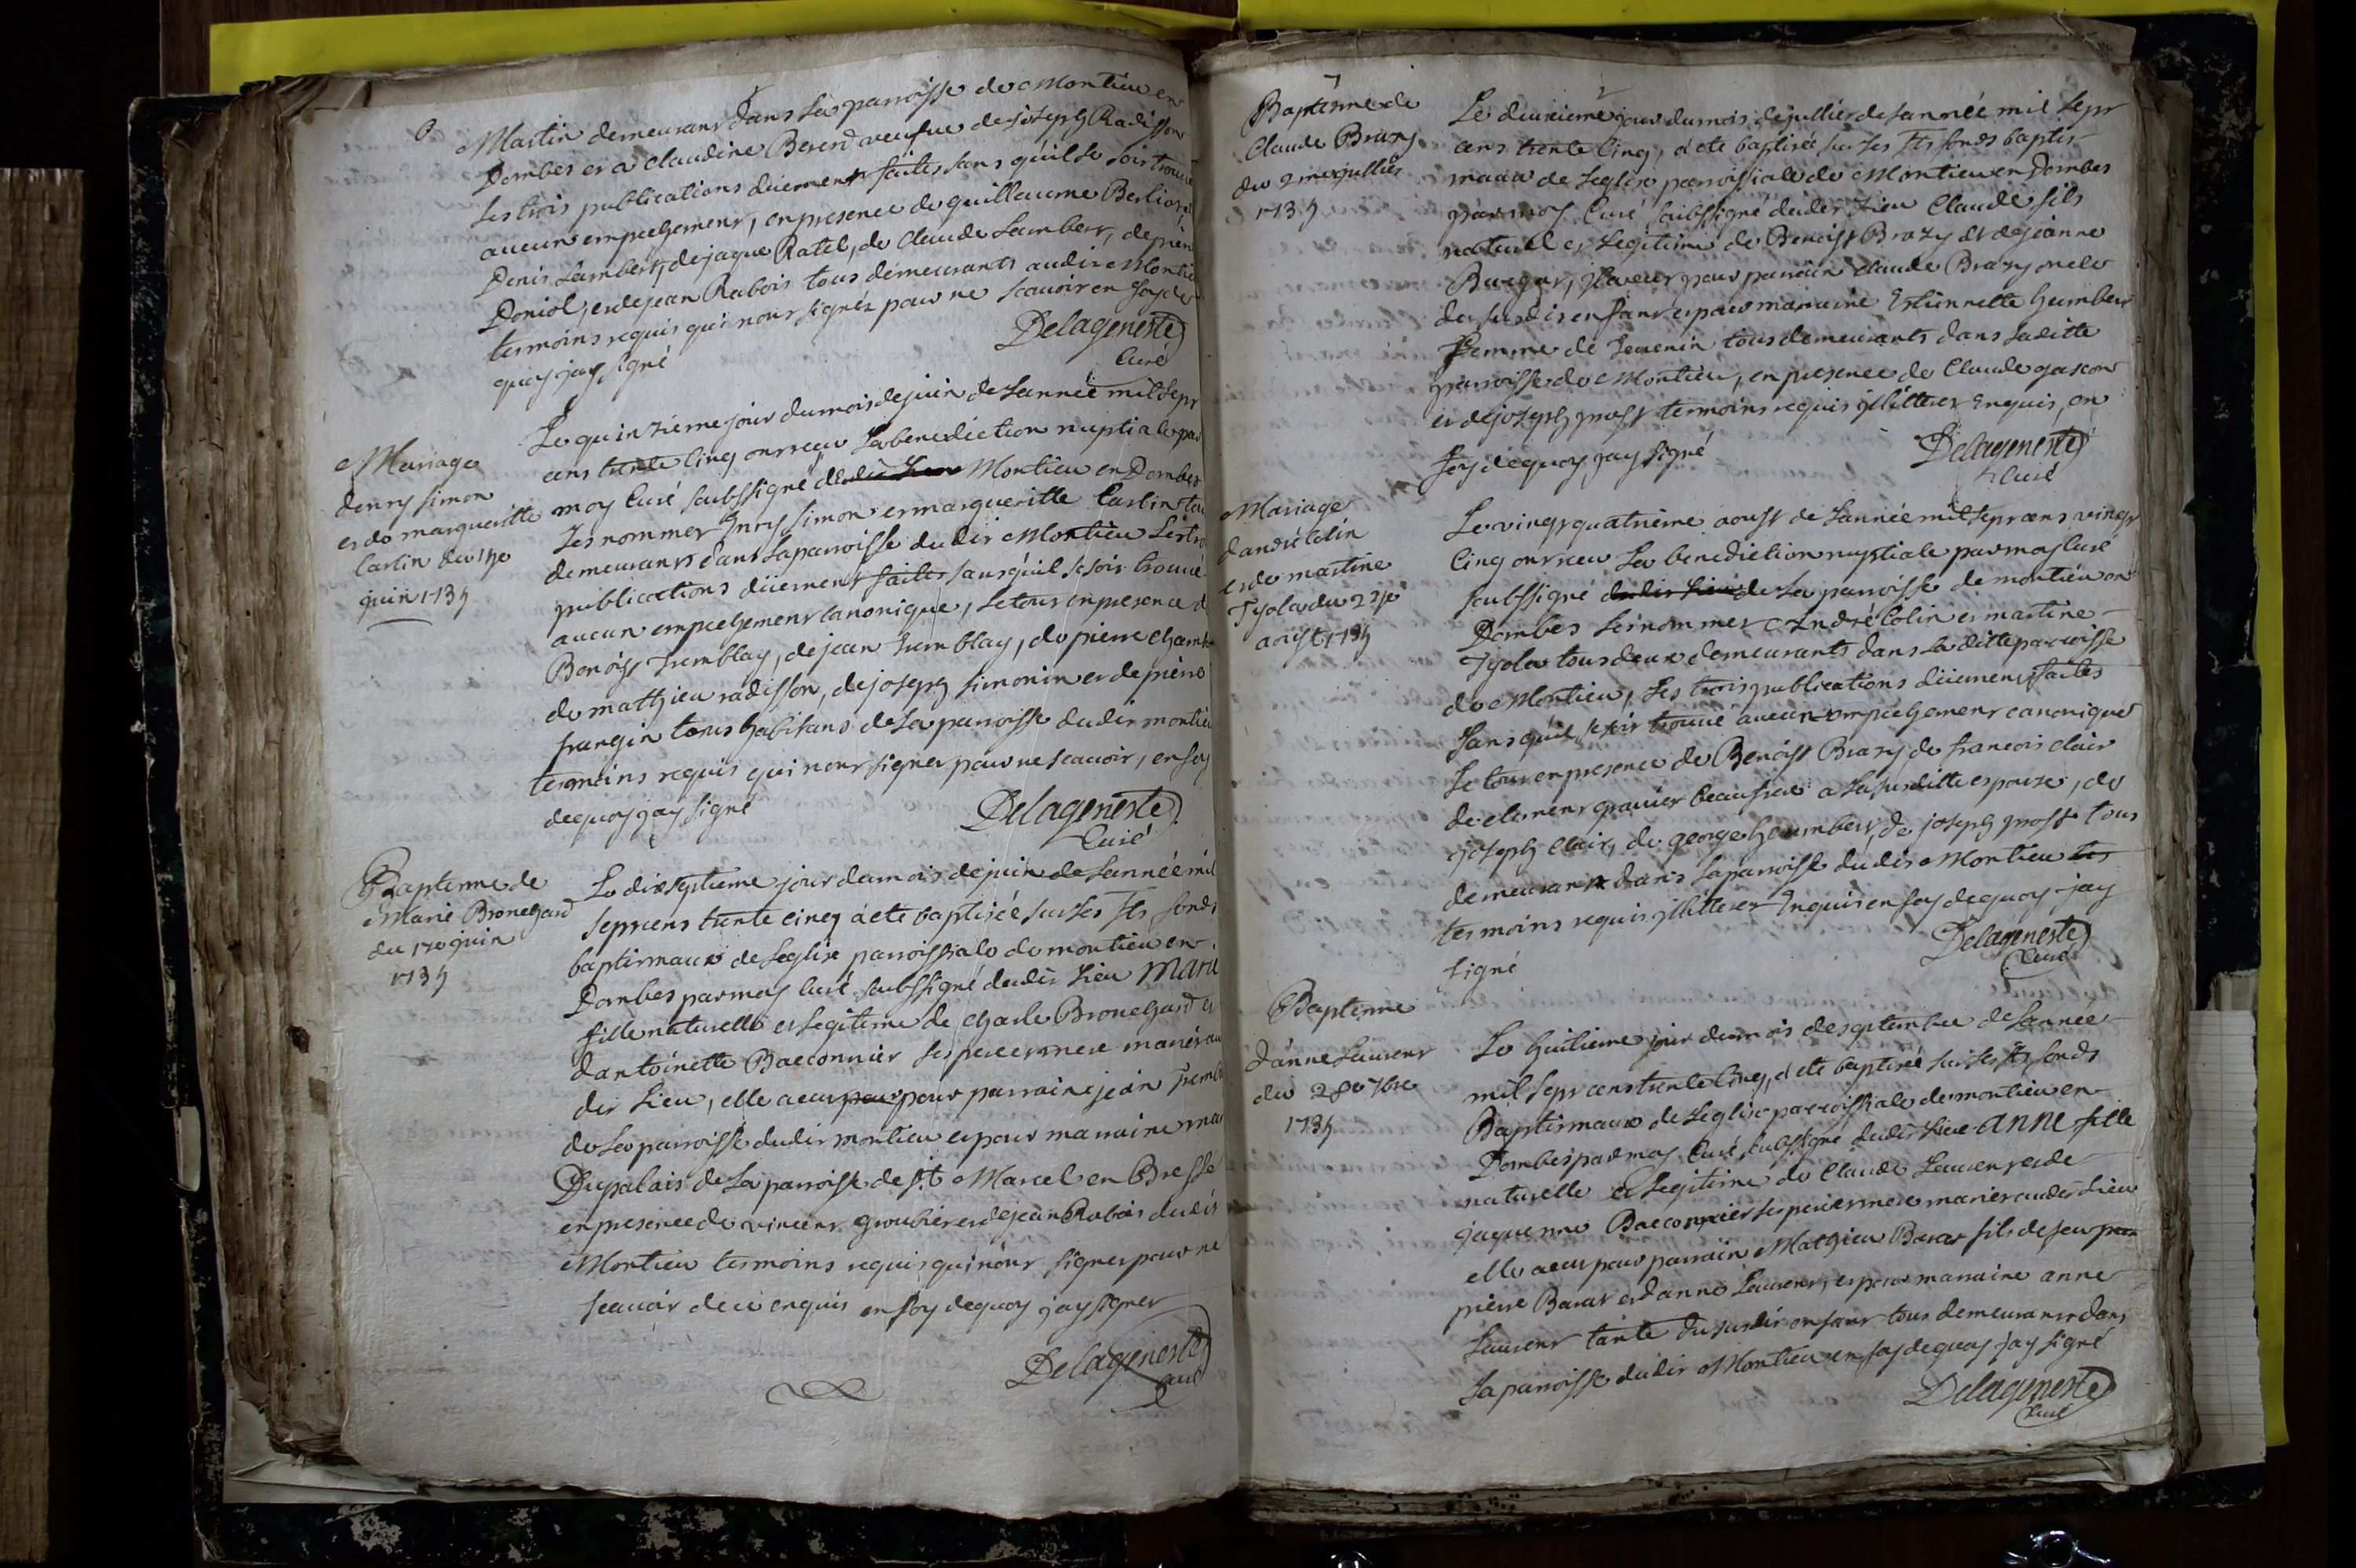 Martin demeurant dans la parroisse de Montieu en
Dombes et a claudine Bererd veufue de joseph Radisson
les trois publications düement faites sans quil se soit trouué
aucun empechement, en presence de guillaume Berlion,
Denis Lambert, de jaque Ratel, de Claude Lambert, de pierre
Doniol, et de jean Rabois tous demeurants audit Montieu
termoins requis qui nont signés pour ne scauoir en foy de
quoy jay signé
Delageneste
Curé
Mariage
denry simon
et de margueritte
Carlin du 15e
juin 1735
Le quinzième jour du mois de juin de Lannée mil sept
cens trente Cinq ont receu La benediction nuptiale par
moy Curé soubssigné de Montieu en Dombes
les nommez henry simon et margueritte Carlin tous
demeurants dans la parroisse dudit Montieu Les trois
publications düement faites sans quil se soit trouué
aucun empechement canonique, le tout en presence de
Benoist Tremblay, de jean Tremblay, de pierre
de mathieu radisson, de joseph simonin et de pierre
frangin tous habitans de la parroisse dudit montieu
termoins requis qui nont signer pour ne scauoir, en foy
de quoy jay signé
Delageneste
Curé
Baptemme de
Marie Bronchard
du 17e juin
1735
Le dixseptieme jour du mois de juin de Lannée mil
sept cens trente cinq a ete baptisée sur les sts fonds
baptismaux de Leglise parroissiale de montieu en
Dombes par moy curé soubssigné dudit Lieu Marie
fille naturelle et legitime de charle Bronchard et
dantoinette Baeconnier ses pere et mere mariés au
dit Lieu, elle a eut pour parraine jean
de la parroisse dudit montieu et pour marraine
Dupalais de La parroisse de st Marcel en Bresse
en presence de vincent groubier et de jean Rabois dudit
Montieu termoins requis qui nont signer pour ne
scauoir de ce enquis en foy de quoy jay signer
Delageneste
curé
Baptemme de
Claude Brazy
du 2me jullies
1735
Le deuxieme jour du mois de jullier de Lannée mil sept
cens trente Cinq, a ete baptisée sur les sts fonds baptis-
maux de Leglise parroissiale de Montieu en Dombes
par moy Curé soubssigné dudit Lieu Claude fils
naturel et Legitime de Benoist Brazy et de jeanne
jl a eut pour parrain Claude Brazy oncle
du susdit enfant et pour marraine Estiennette humbert
femme de tous demeurants dans laditte
parroisse de Montieu, en presence de Claude gascon
et de joseph prost termoins requis jllitteres Enquis, en
foy de quoy jay signé
Delageneste
Curé
Mariage
dandré Colin
et de martine
Tyola du 24e
aoust 1735
Le vingt quatrième aoust de Lannée mil sept cens vingt
Cinq ont receu La benediction nuptiale par moy Curé
soubssigné de La parroisse de montieu en
Dombes les nommez André Colin et martine
Tyola tous deux demeurants dans La ditte parroisse
de Montieu, Les trois publications düement faites
sans quil se soit trouué aucun empechement canonique
Le tout en presence de Benoist Brazy de francois clair
de clement gravier beaufrere a la susditte espouse, de
joseph clair, de george humbert, de joseph prost tous
demeurant dans la parroisse dudit Montieu
termoins requis jllitteres Enquis en foy de quoy jay
signé
Delageneste
Curé
Baptemme
danne Laurent
du 28e 7bre
1735
Le huitieme jour du mois de septembre de Lannée
mil sept cens trente Cinq, a ete baptisée sur les sts fonds
Baptismaux de Leglise parroissiale de montieu en
Dombes par moy Curé soubssigné dudit Lieu Anne fille
naturelle et Legitime de Claude Laurent et de
jaquemme Baeconnier ses pere et mere mariés audit Lieu
elle a eut pour parrain Mathieu Barat fils de feu
pierre Barat et danne Laurent, et pour marraine anne
Laurent tante du susdit enfant tous demeurants dans
la parroisse dudit Montieu en foy de quoy jay signé
Delageneste
Curé